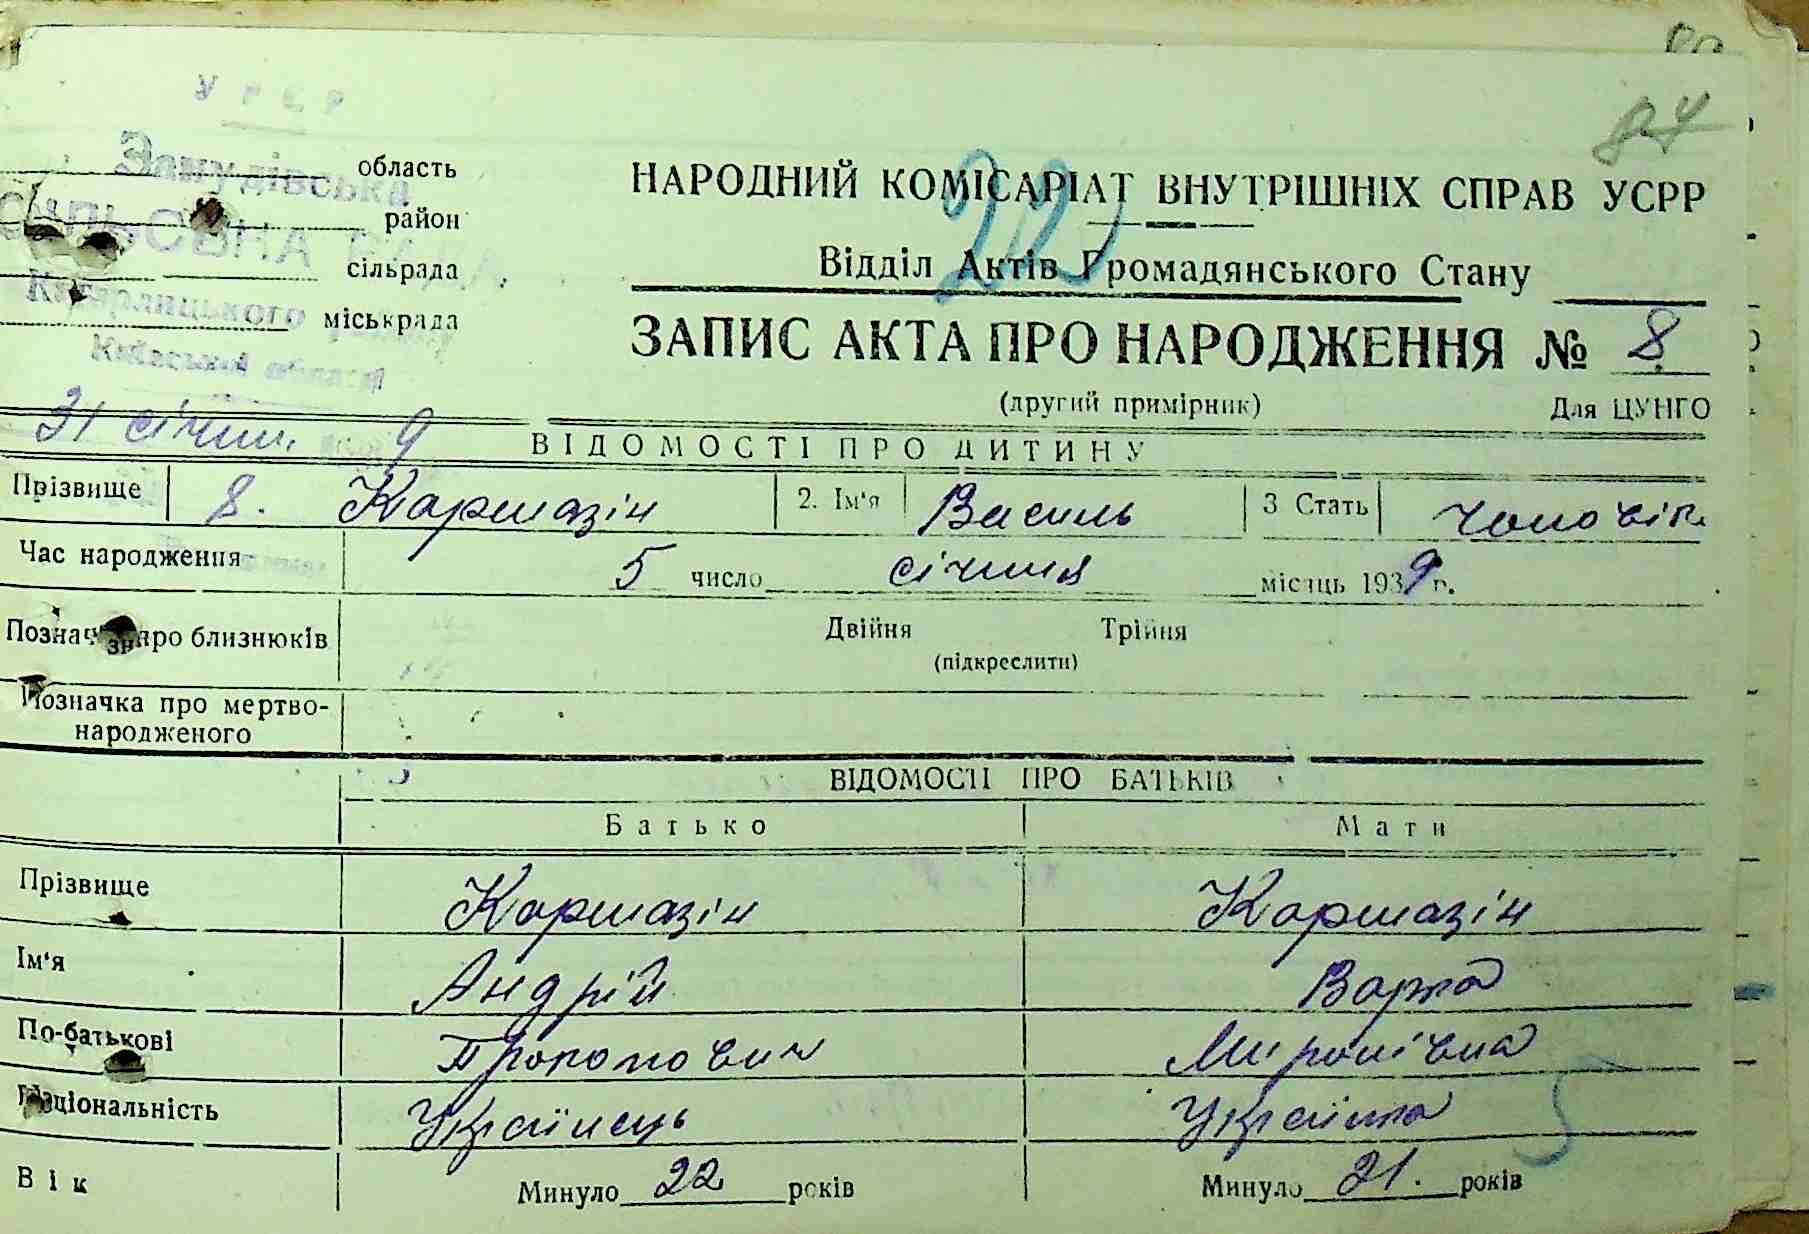 УРСР
84
Занудівська
СІЛЬСЬКА РАДА
Кагарлицького району
Київської області
область
район
сільрада
міськрада
НАРОДНИЙ КОМІСАРІАТ ВНУТРІШНІХ СПРАВ УСРР
22
Відділ Актів Громадянського Стану
ЗАПИС АКТА ПРО НАРОДЖЕННЯ № 8
(другий примірник) Для ЦУНГО
31 січня 9
ВІДОМОСТІ ПРО ДИТИНУ
Прізвище 8. Кармазін 2. Ім'я Василь 3 Стать чоловік
Час народження 5 число січня місяць 1939 р.
Познач про близнюків Двійня Трійня
(підкреслити)
Позначка про мертво-
народженого
ВІДОМОСТІ ПРО БАТЬКІВ
Батько Мати
Прізвище Кармазін Кармазін
Ім'я Андрій Варка
По-батькові Прокопович Миронівна
Національність Українець Українка
Вік Минуло 22 років Минуло 21. років